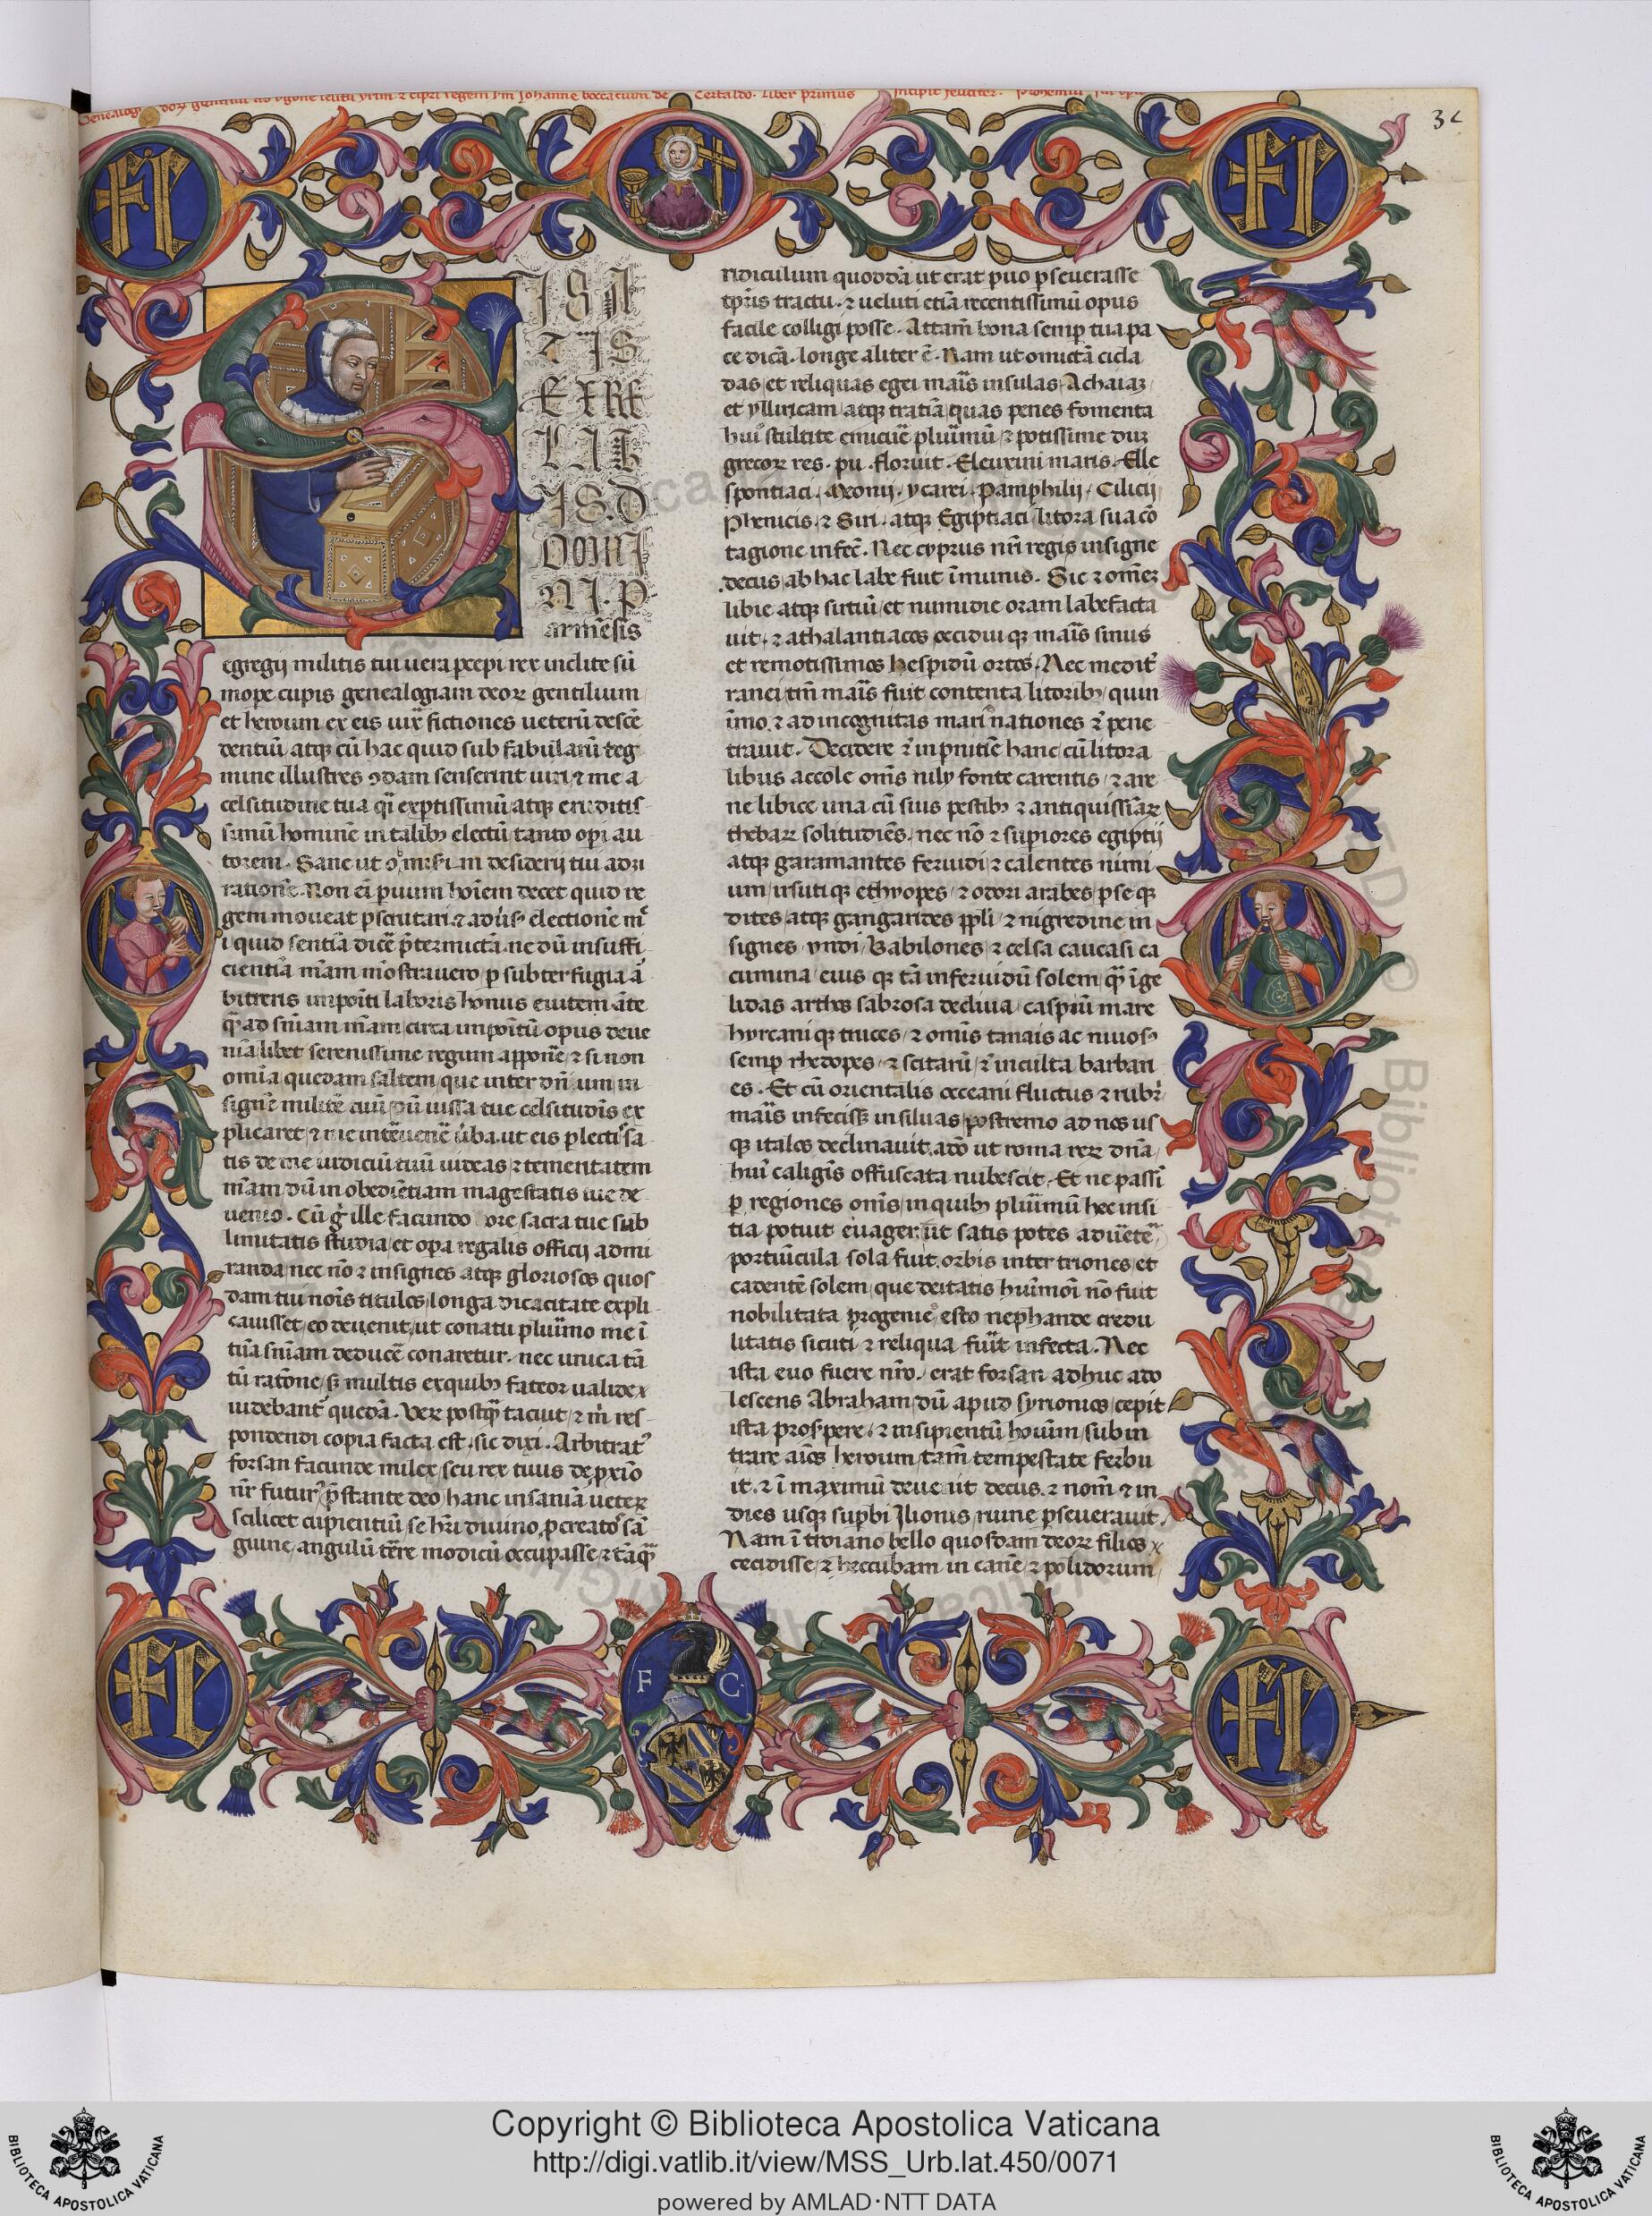 Genealogie deorum gentiliū ad vgonē iclitū yr̄lm ⁊ cipri regem ẜm Johannē boccacium de Certaldo. Liber primus Incipit feliciter. Prohemiū
32
SI SA
TIS
EX RE
LAT
IS. D
OMI
NI. P
armēsis
egregij militis tui uera ꝑcepi rex inclite sū
mope cupis genealogiam deoꝝ gentilium
et heroum ex eis iuxͣ fictiones ueterū descē
dentiū atqꝫ cū hac quid sub fabularū teg
mine illustres ꝙdam senserint uiri ⁊ me a
celsitudine tua qͣi exꝑtissimū atqꝫ eruditis
simū hominē in talibꝫ electū tanto oꝑi au
torem. Sane ut
rationē. Non eī ꝑuum hoīem decet quid re
gem moueat ꝑscrutari ⁊ aduersꝰ electionē mī
i quid sentiā dicē p̄termictā ne dū insuffi
cientiā mēam mōstrauero ꝑ subterfugia ā
bitreris impoīti laboris honus euitem āte
qͣ ad sn̄iam mēam circa impoītū opus deue
niā libet serenissime regum apponē ⁊ si non
omīa quedam saltem que inter dn̄iūm in
signē militē tuū dū iussa tue celsitudīs ex
plicaret ⁊ me intēuenē ūba ut eis ꝑlectis sa
tis de me iudiciū tuū uideas ⁊ temeritatem
mēam dū in obedientiam magestatis tue de
uenio. Cū gͦ ille facundo ore sacra tue sub
limitatis studia et opa regalis officij admi
randa nec nō ⁊ insignes atqꝫ gloriosos quos
dam tui noīs titulos longa dicacitate expli
cauisset eo deuenit ut conatu plurimo me ī
tuā sn̄iam deducē conaretur nec unica tā
tū ratōne sꝫ multis ex quibꝫ fateor ualide
uidebant̄ quedā. Veꝝ postqͣ tacuit ⁊ mī res
pondendi copia facta est sic dixi. Arbitrat̄
forsan facunde milex seu rex tuus de ꝓxīo
nr̄ futurꝰ p̄stante deo hanc insaniā ueteꝝ
scilicet cupientiū se hr̄i diuino ꝓcreatos sā
guine angulū terre modicū occupasse ⁊ tāqͣ
ridiculum quoddā ut erat paruo ꝑseuerasse
tp̄ris tractu ⁊ ueluti etiā recentissimū opus
facile colligi posse. Attam̄ bona semꝑ tua pa
ce dicā longe aliter ē. Nam ut omictā cicla
das et reliquas egei mar̄is insulas Achaiaꝫ
et ylliricam atqꝫ traciā quas penes fomenta
huiꝰ stultitie emicuē plurimū ⁊ potissime duꝫ
grecoꝝ res. pu. floruit. Eleuxini maris. Elle
spontiaci. Meonij. ycarei. Pamphilij. Cilicij
Phenicis ⁊ Siri. atqꝫ Egiptiaci litora sua cō
tagione infec̄. Nec cyprus nr̄i regis insigne
decus ab hac labe fuit īmunis. Sic ⁊ om̄eꝫ
libie atqꝫ sirtiū et numidie oram labefacta
uit. ⁊ athalantiacos occidui qꝫ mar̄is sinus
et remotissimos hesꝑidū ortos. Nec medit̄
ranei tm̄ mar̄is fuit contenta litoribꝫ quin
īmo ⁊ ad incognitas mari nationes ⁊ pene
trauit. Decidere ⁊ in ꝑnitiē hanc cū litora
libus accole om̄s nily fonte carentis ⁊ are
ne libice una cū suis pestibꝫ ⁊ antiquissiāꝝ
thebaꝝ solitudīes. nec nō ⁊ suꝑiores egiptij
atqꝫ garamantes feruidi ⁊ calentes nimi
um irsuti qꝫ ethyopes ⁊ odori arabes ꝑse qꝫ
dites atqꝫ gangarides ppli ⁊ nigredine in
signes yndi Babilones ⁊ celsa caucasi ca
cumina eius qꝫ tā in feruidū solem qͣ ī ge
lidas arthos sabrosa decliuia caspiū mare
hyrcani qꝫ truces ⁊ om̄is tanais ac niuosꝰ
semꝑ rhodopes ⁊ scitarū ⁊ inculta barbari
es. Et cū orientalis occeani fluctus ⁊ rubri
mar̄is infecissꝫ insulas postremo ad nos us
qꝫ italos declinauit adō ut roma reꝝ dn̄a
huiꝰ caligīs offuscata nubescit. Et ne passī
ꝑ regiones om̄s in quibꝫ plurimū hec insi
tia potuit euager. ut satis potes aduertē
portiūcula sola fuit orbis inter triones et
cadentē solem que deitatis huiꝰmoi nō fuit
nobilitata progenie esto nephande credu
litatis sicuti ⁊ reliqua fuīt infecta. Nec
ista euo fuere nr̄o. erat forsan adhuc ado
lescens Abraham dū apud syrionios cepit
ista prospere ⁊ insipientū hoium sub in
trare aīos heroum tam̄ tempestate ferbu
it. ⁊ ī maximū deuenit decus ⁊ nom̄ ⁊ in
dies usqꝫ suꝑbi Jlionis ruine ꝑseuerauit.
Nam ī troiano bello quosdam deoꝝ filios
cecidisse ⁊ heccubam in canē ⁊ polidorum
F C
Copyright © Biblioteca Apostolica Vaticana
http://digi.vatlib.it/view/MSS_Urb.lat.450/0071
powered by AMLAD·NTT DATA
BIBLIOTECA APOSTOLICA VATICANA
BIBLIOTECA APOSTOLICA VATICANA